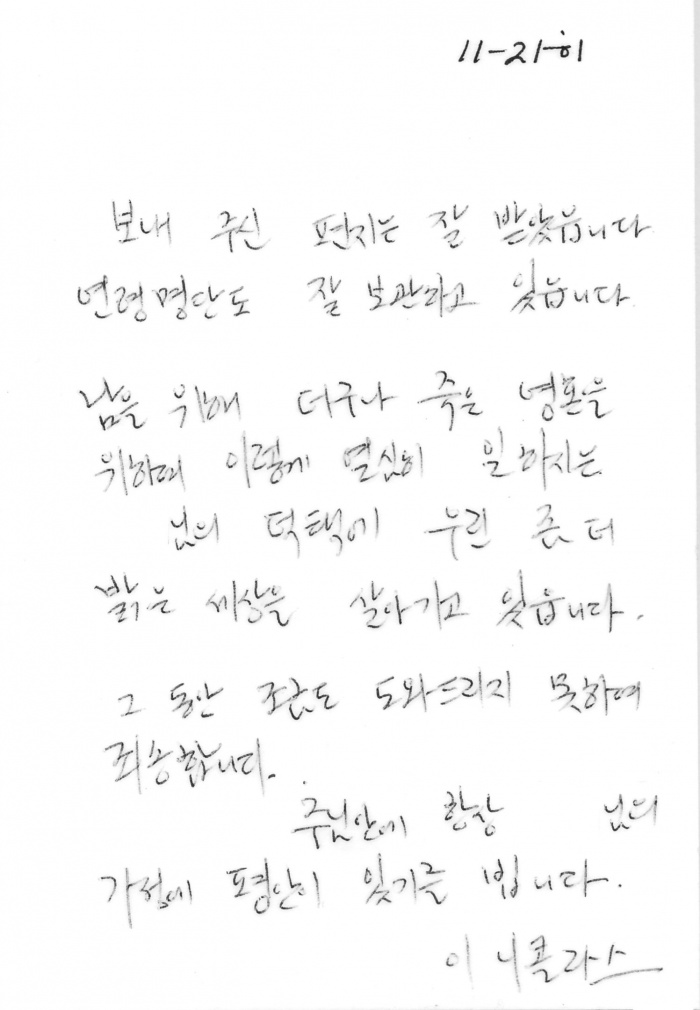 11-21-01
보내 주신 편지는 잘 받았읍니다
연령명단도 잘 보관하고 있읍니다
남을 위해 더구나 죽은 영혼을
위하여 이렇게 열심히 일하시는
님의 덕택에 우린 좀 더
밝은 세상을 살아가고 있읍니다.
그 동안 조금도 도와드리지 못하여
죄송합니다.
주님안에 항상 님의
가정에 평안이 있기를 빕니다.
이 니콜라스